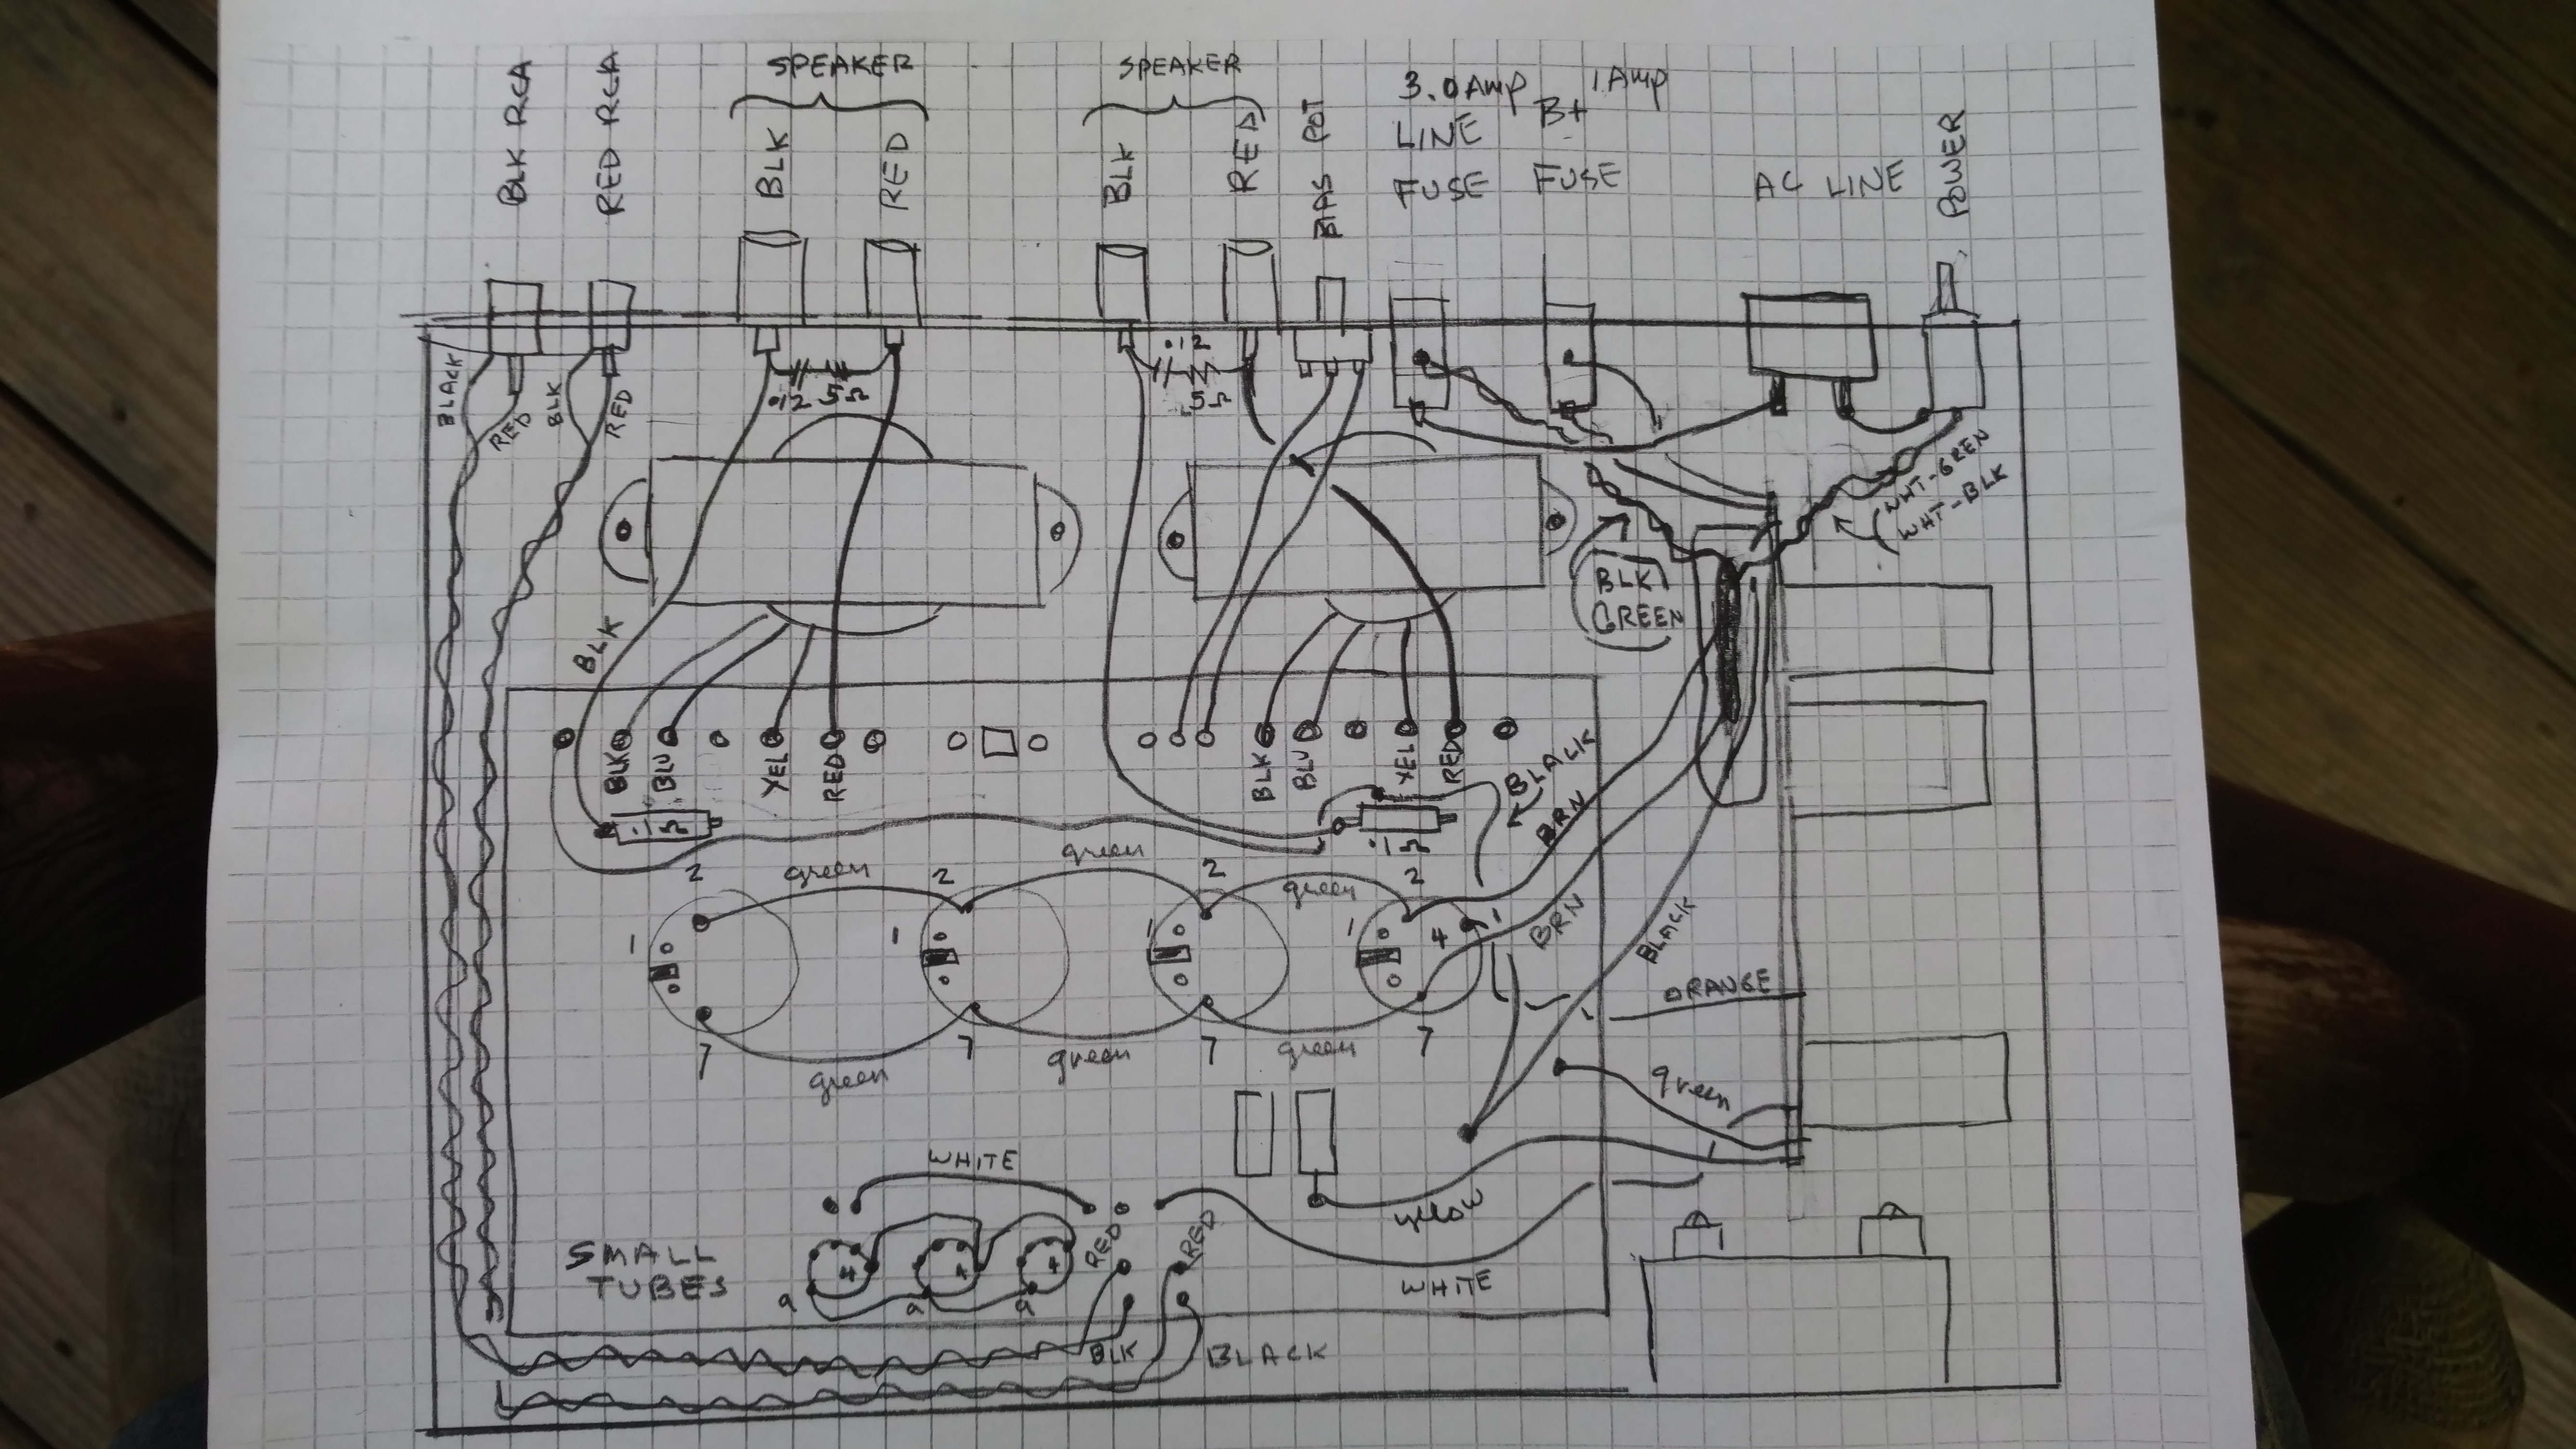 BLK RCA
RED RCA
SPEAKER
BLK
RED
SPEAKER
BLK
RED
BIAS POT
3.0 Amp
LINE
FUSE
1 Amp
B+
FUSE
AC LINE
POWER
BLACK
RED
BLK
RED
.12 .5Ω
.12
.5Ω
WHT-GREEN
WHT-BLK
BLK
GREEN
BLK
BLK
BLU
YEL
RED
BLK
BLU
YEL
RED
BLACK
BRN
.1Ω
.1Ω
2
green
2
green
2
green
2
1
1
1
1
4
1
BRN
BLACK
ORANGE
7
green
7
green
7
green
7
green
WHITE
yellow
RED
RED
SMALL
TUBES
4
4
4
9
9
9
WHITE
BLK
BLACK